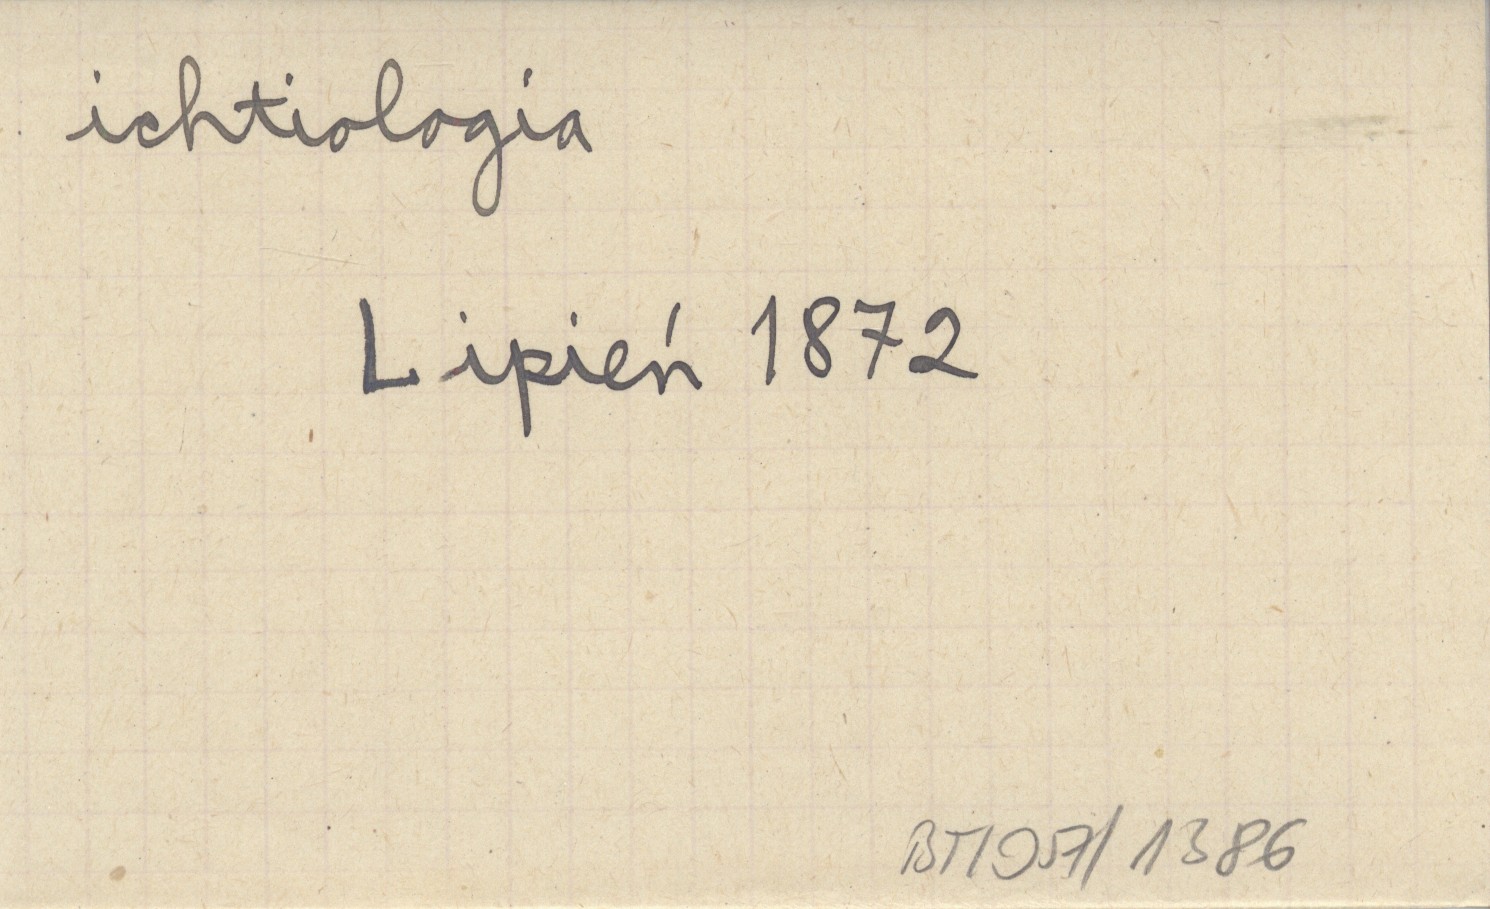 ichtiologia
Lipień 1872
1386